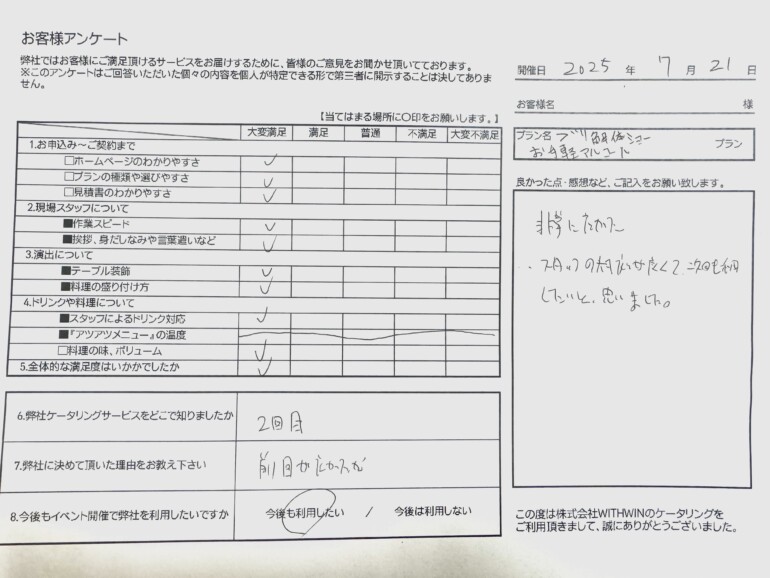 お客様アンケート
弊社ではお客様にご満足頂けるサービスをお届けするために、皆様のご意見をお聞かせ頂いております。
※このアンケートはご回答いただいた個々の内容を個人が特定できる形で第三者に開示することは決してありま
せん。
開催日 2025 年 7 月 21 日
お客様名 様
プラン名 ブリ解体ショー
お手軽アルコール プラン
【当てはまる場所に〇印をお願いします。】
大変満足 満足 普通 不満足 大変不満足
1.お申込み～ご契約まで
□ホームページのわかりやすさ ✓
□プランの種類や選びやすさ ✓
□見積書のわかりやすさ ✓
2.現場スタッフについて
■作業スピード ✓
■挨拶、身だしなみや言葉遣いなど ✓
3.演出について
■テーブル装飾 ✓
■料理の盛り付け方 ✓
4.ドリンクや料理について
■スタッフによるドリンク対応 ✓
■『アツアツメニュー』の温度
□料理の味、ボリューム ✓
5.全体的な満足度はいかがでしたか ✓
6.弊社ケータリングサービスをどこで知りましたか 2回目
7.弊社に決めて頂いた理由をお教え下さい 前回が良かった
8.今後もイベント開催で弊社を利用したいですか 今後も利用したい / 今後は利用しない
良かった点・感想など、ご記入をお願い致します。
非常に良かった
スタッフの対応が良くて次回も利用
したいと思いました。
この度は株式会社WITHWINのケータリングを
ご利用頂きまして、誠にありがとうございました。